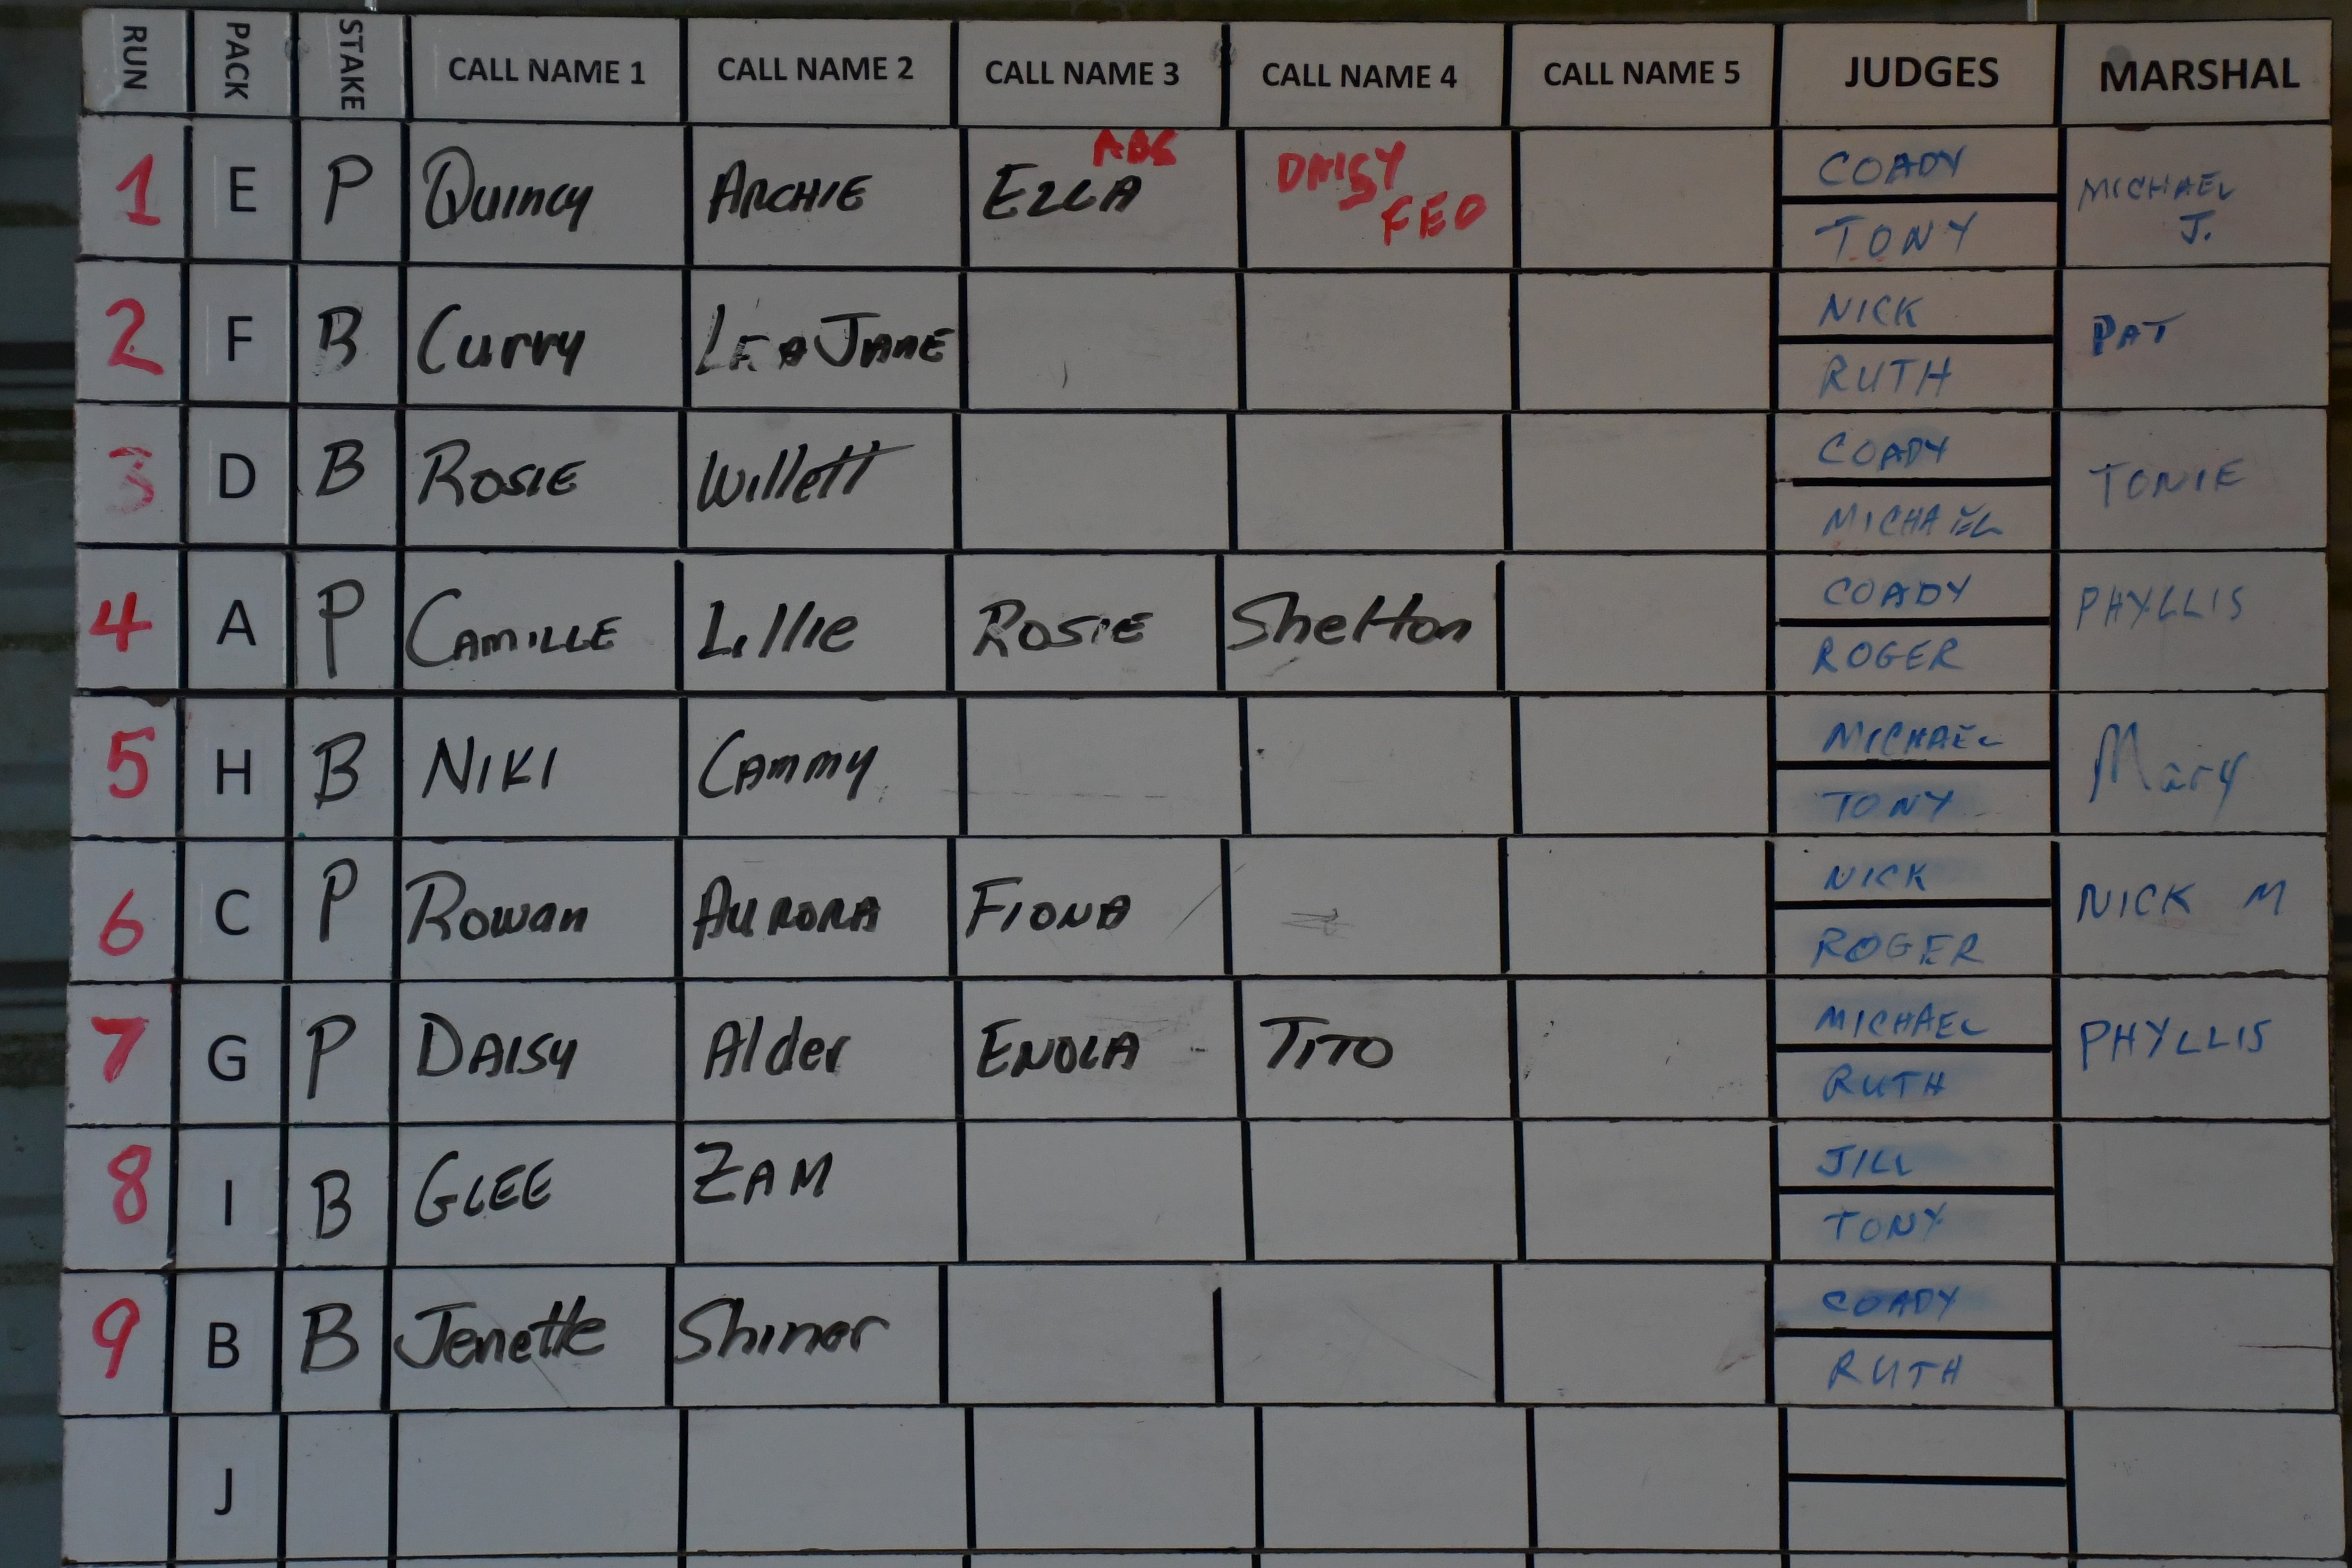 RUN PACK STAKE CALL NAME 1 CALL NAME 2 CALL NAME 3 CALL NAME 4 CALL NAME 5 JUDGES MARSHAL
1 E P Quincy ARCHIE ELLA ABS DAISY FEO COADY TONY MICHAEL J.
2 F B Curry LEA JANE NICK RUTH PAT
3 D B ROSIE Willett COADY MICHAEL TONIE
4 A P CAMILLE Lillie ROSIE Shelton COADY ROGER PHYLLIS
5 H B NIKI CAMMY MICHAEL TONY Mary
6 C P Rowan AURORA FIONA NICK ROGER NICK M
7 G P DAISY Alder ENOLA TITO MICHAEL RUTH PHYLLIS
8 I B GLEE ZAM JILL TONY
9 B B Jenette Shiner COADY RUTH
J